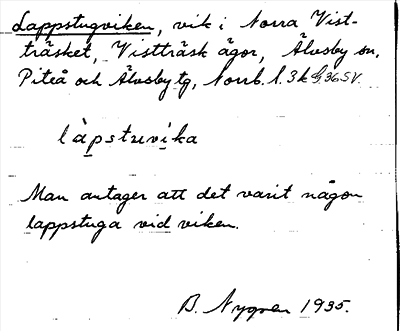 Lappstugviken, vik i Norra Vist-
träsket, Vistträsk ägor, Älvsby sn,
Piteå och Älvsby tg, Norrb. l. 36SV.
làpstuvika
Man antager att det varit någon
lappstuga vid viken.
B. Nygren 1935.